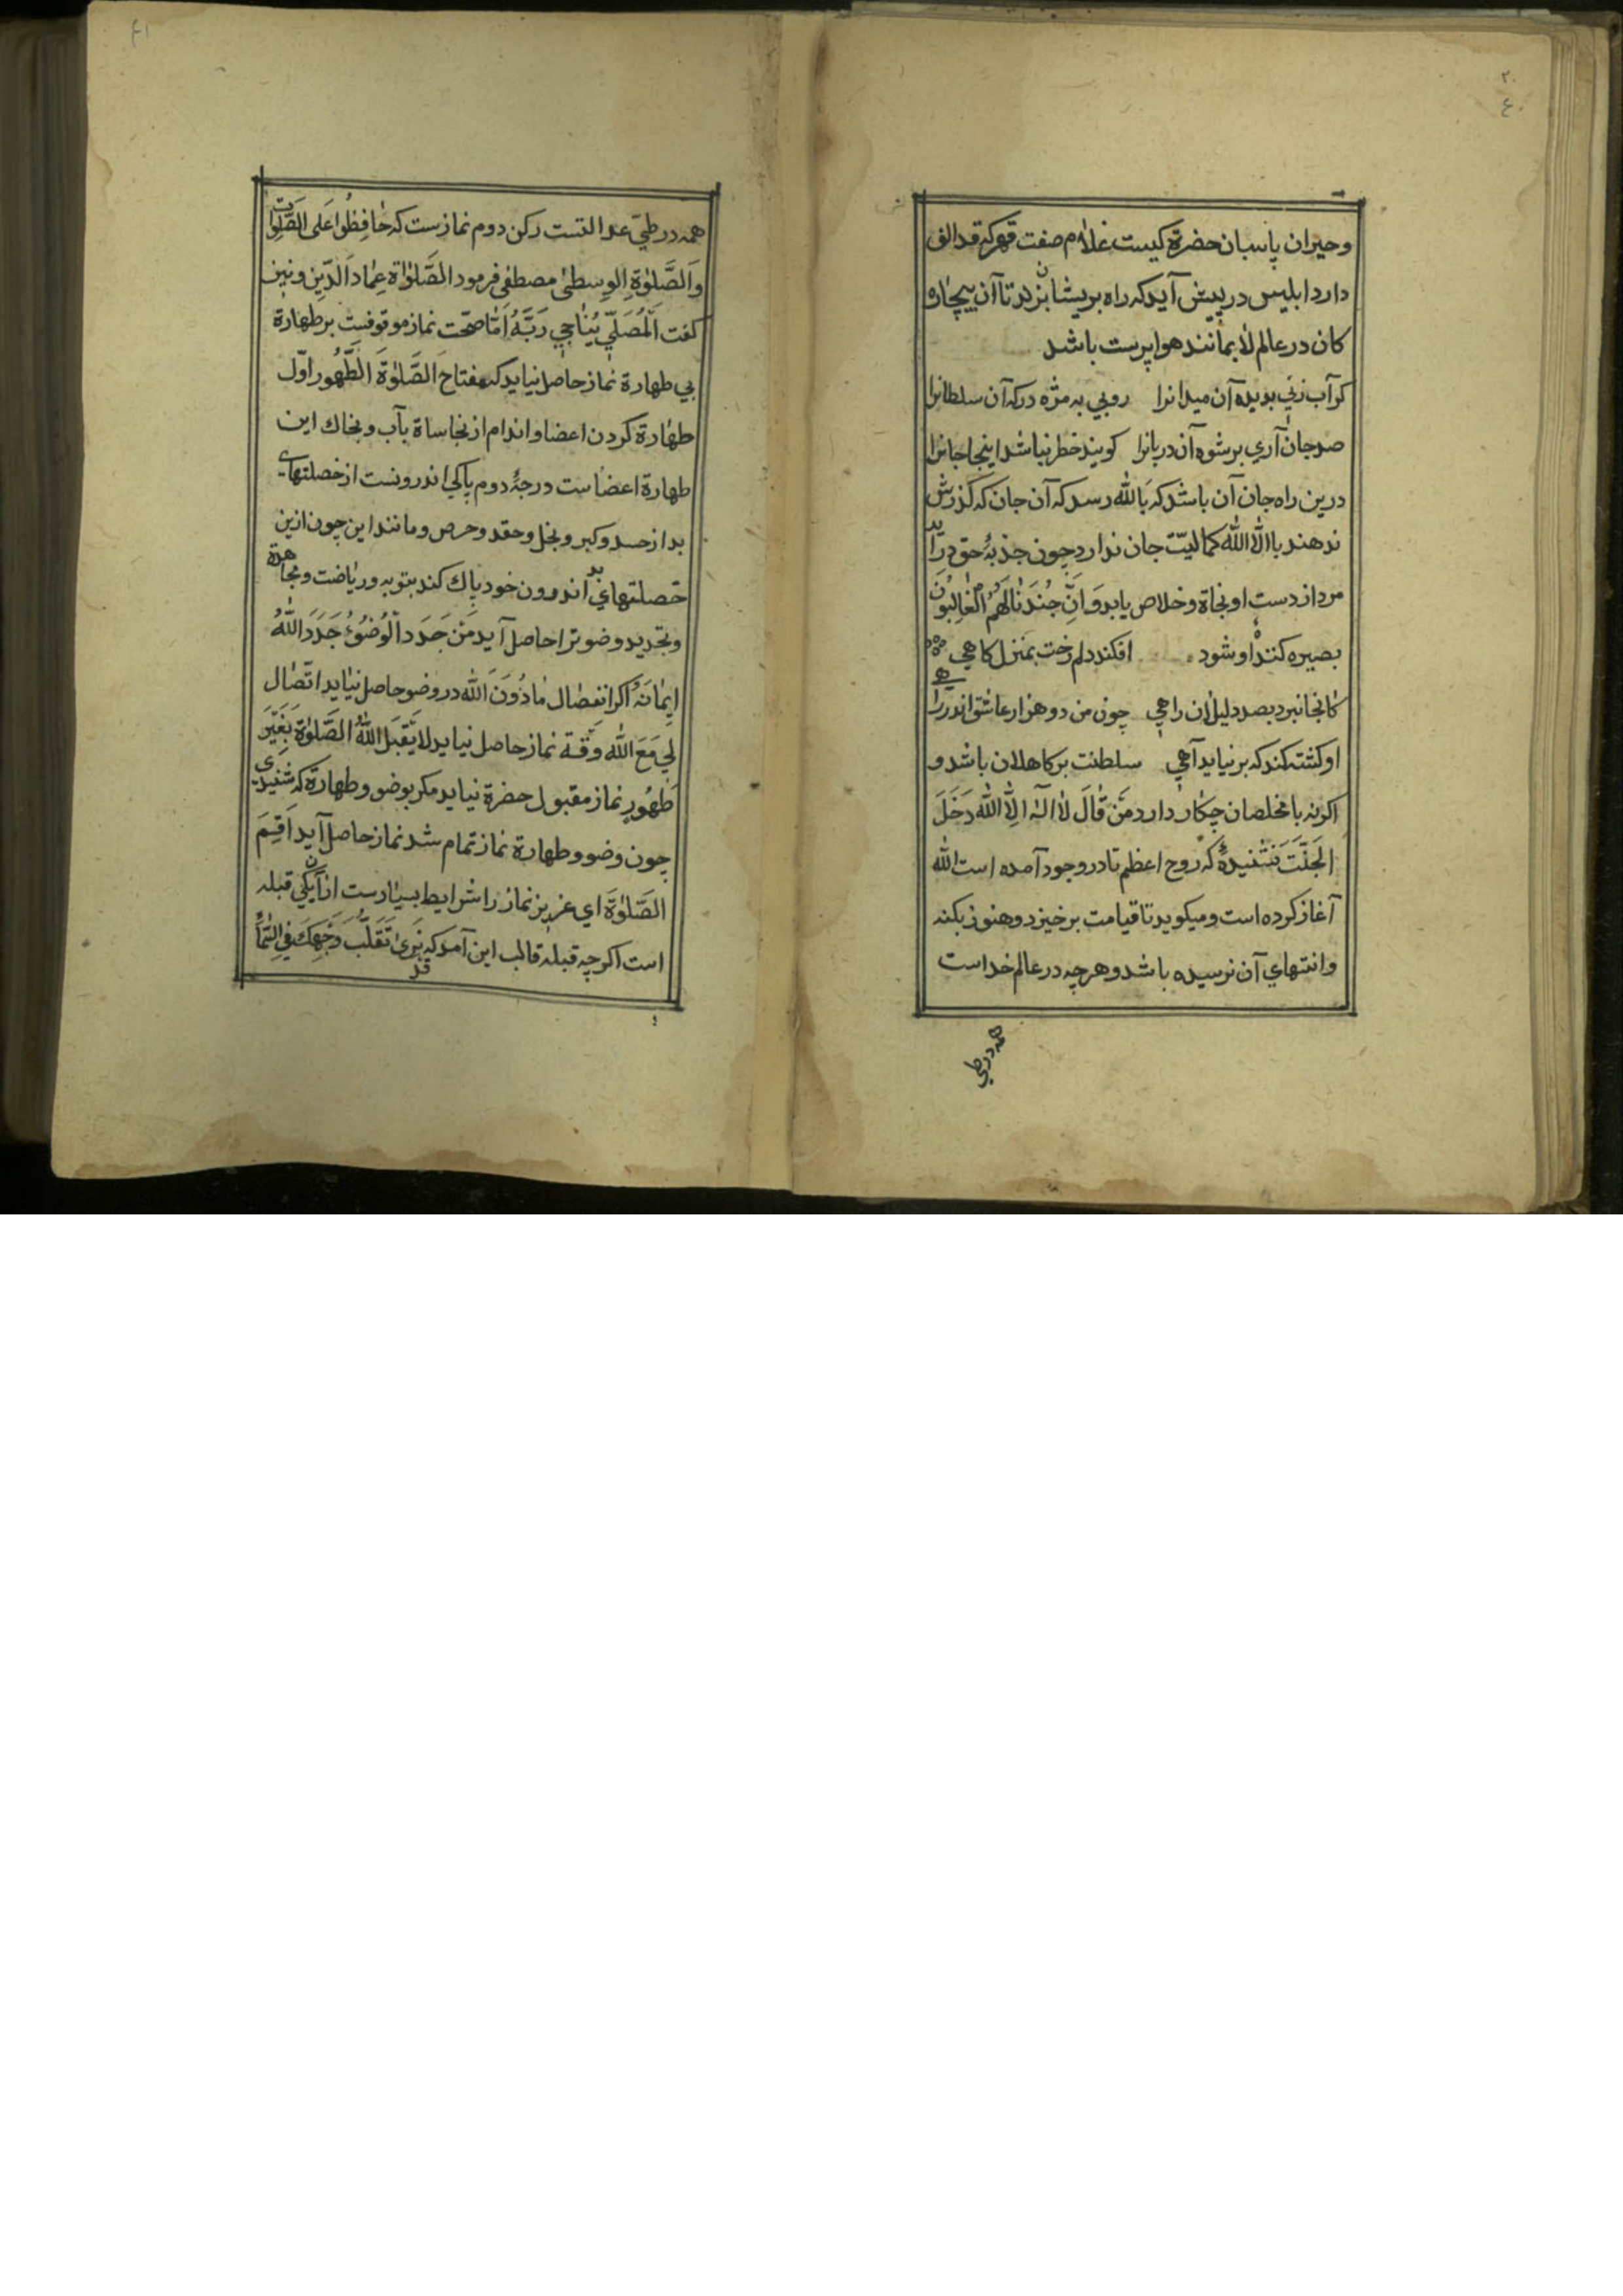 ۲۰
۴۰
وحیران پاسبان حضرة کیست غلام صفت قهر که قد الف
دارد ابلیس در پیش آید که راه بریشان بزند تا آن بیچاره
کان در عالم لا بمانند هوا پرست باشد
کر آب زنی بدیده آن میدانرا روبی به مژه درکه آن سلطانرا
صد جان آری برشوه آن دربانرا کویند خطر نباشد اینجا جانرا
درین راه جان آن باشد که بالله رسد که آن جان که گذرش
ندهند با الّا الله کمالیّت جان ندارد چون جذبهٔ حق درآید
مرد از دست او نجاة و خلاص یابد وَ اِنَّ جُندَنٰا لَهُمُ الْغٰالِبُونَ
بصیره کننده او شود افکند دلم رخت بمنزل کاهی
کانجا نبرد بصد دلیل ان راهی چون من دو هزار عاشق اندر راهی
او کشته کند که بر نیاید آهی سلطنت بر کاهلان باشد و
اکرنه با مخلصان چکار دارد مَنْ قٰالَ لٰا اِلٰهَ اِلَّا اللّٰه دَخَلَ
الجَنَّتَ نشنیدهٔ که روح اعظم تا در وجود آمده است الله
آغاز کرده است و میکوید تا قیامت برخیزد و هنوز بکنه
و انتهای آن نرسیده باشد و هرچه در عالم خداست
همه در طی
۴۱
همه در طیّ عدالتست رکن دوم نمازست که حٰافِظُوا عَلَی الصَّلَوٰاتِ
وَالصَّلوٰةِ الوِسطیٰ مصطفی فرمود الصَّلوٰاة عِمٰادَ الدِّین و نیز
کفت اَلْمُصَلّیِ یُنٰاجِی رَبَّهُ اَمّا صحّت نماز موقوفست بر طهارة
بی طهارة نماز حاصل نیاید که مفتاحَ الصَّلوٰةَ الطَّهُور اوّل
طهارة کردن اعضا و اندام از نجاساة بآب و بخاك این
طهارة اعضاست درجهٔ دوم پاکی اندرونست از خصلتهای
بد از حسد و کبر و بخل و حقد و حرص و مانند این چون ازین
خصلتهای بد اندرون خود پاك کند بتوبه و ریاضت و مجاهدة
و تجدید وضو ترا حاصل آید مَنْ جَدَدَ الْوُضُؤُ جَدَدَ اللّٰهُ
اِیمٰانَهُ اکر انفصال مٰا دُونَ اللّٰه در وضو حاصل نیاید اتّصال
لِی مَعَ اللّٰه وَقْة نماز حاصل نیاید لا یَقبَل اللّٰهُ الصَّلوٰةَ بِغَیْرَ
طَهُورٍ نماز مقبول حضرة نیاید مکر بوضو و طهارة که شنیدی
چون وضو و طهارة نماز تمام شد نماز حاصل آید اَقِیمَ
الصَّلوٰةَ ای عزیز نماز را شرایط بسیارست از آن یکی قبله
است اکرچه قبله قالب این آمد که قد نَرَیٰ تَقَلُّبَ وَجْهِكَ فِی السَّمٰاءِ